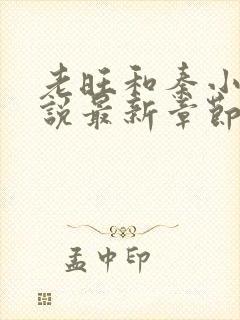 老旺和秦小
說最新章節
孟中印